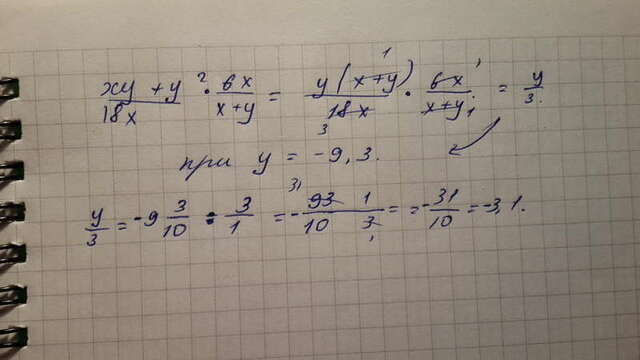 (xy + y²)/18x · 6x/(x+y) = y(x+y)/18x · 6x/(x+y) = y/3.
при y = -9,3.
y/3 = -9 3/10 : 3/1 = -93/10 1/3 = = -31/10 = -3,1.